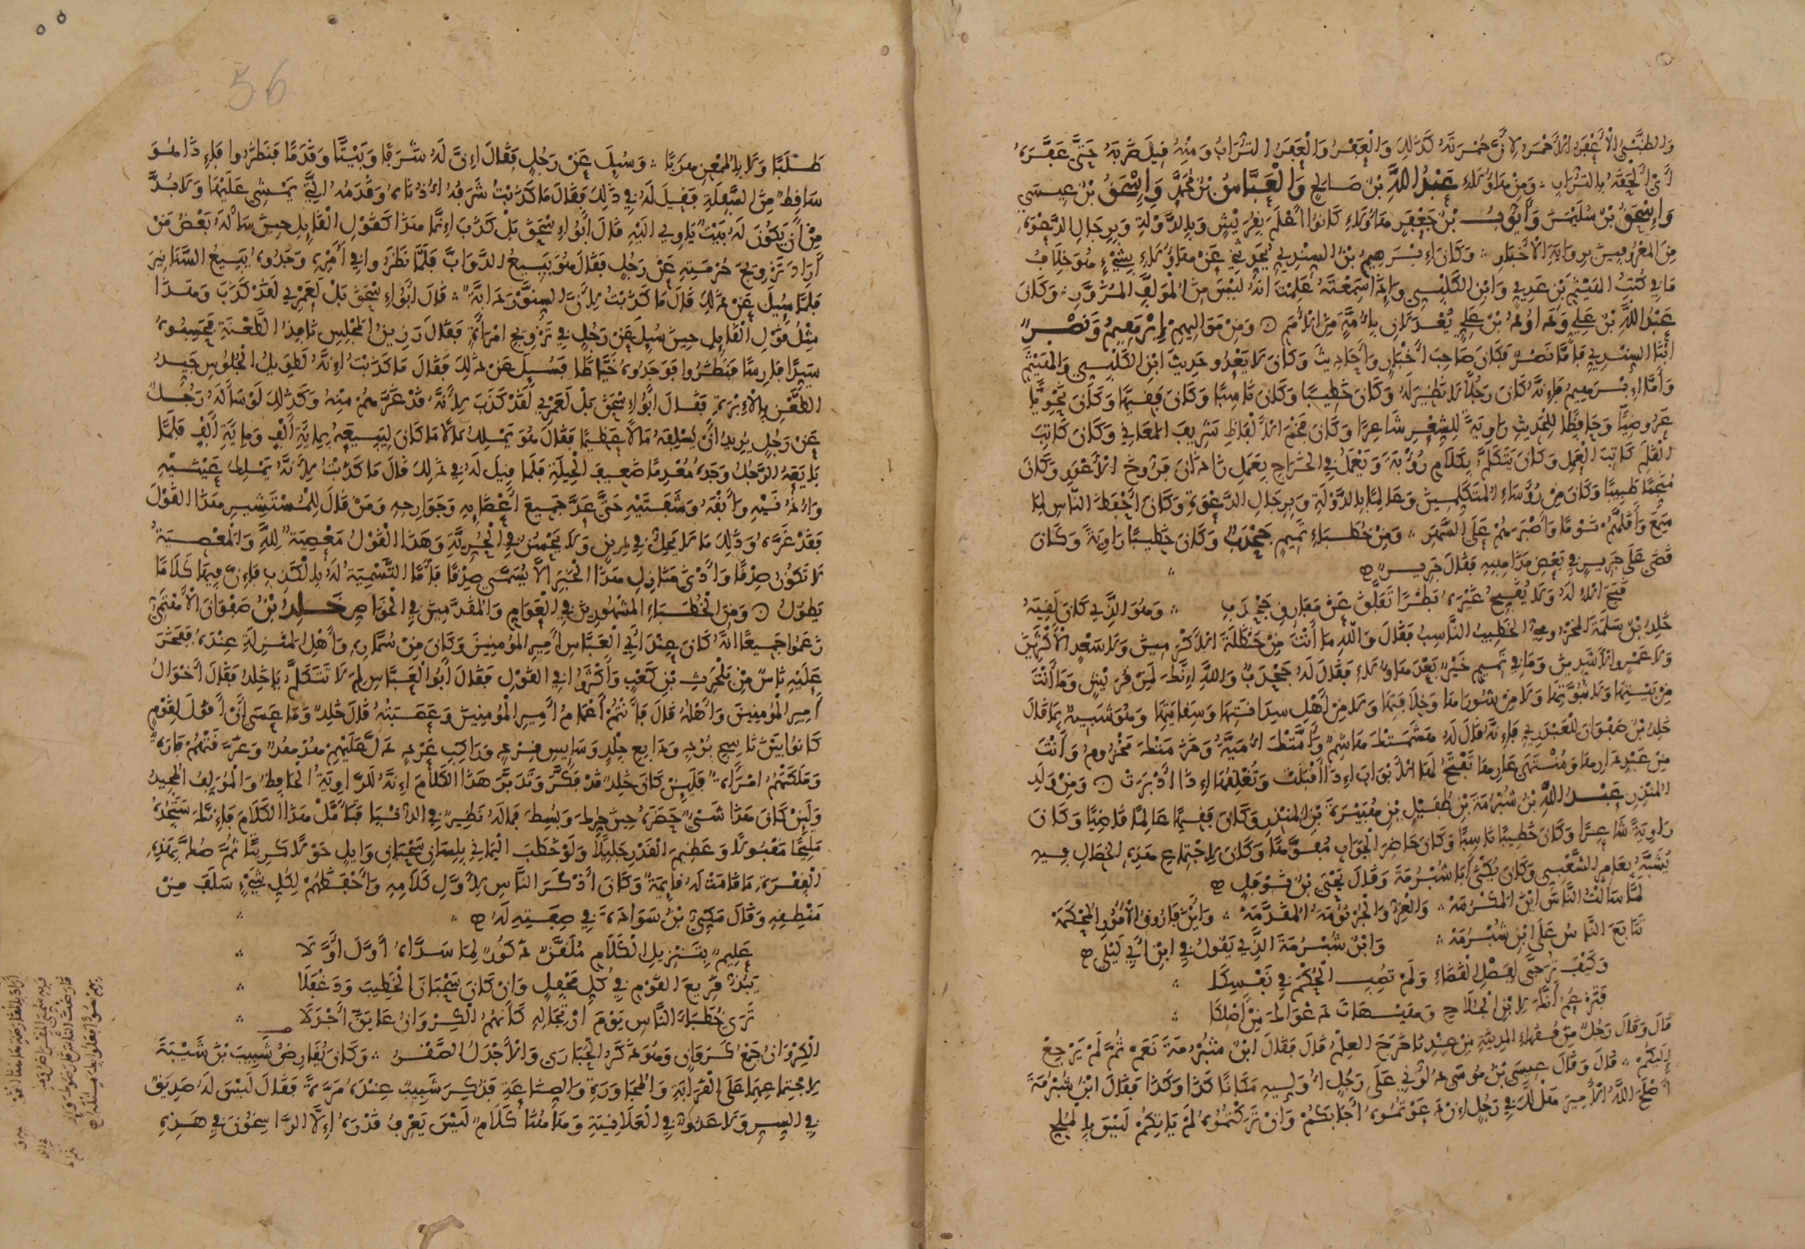 وَالظَّبْيُ الْأَعْفَرُ الْأَحْمَرُ لِأَنَّ حُمْرَتَهُ كَذَٰلِكَ وَالْعَفَرُ وَالْعَفْرُ التُّرَابُ وَمِنْهُ قِيلَ ضَرَبَهُ حَتَّى عَفَّرَهُ
أَيْ أَلْحَقَهُ بِالتُّرَابِ وَمِنْ هَاؤُلَاءِ عَبْدُ اللَّهِ بْنُ صَالِحٍ وَالْعَبَّاسُ بْنُ مُحَمَّدٍ وَإِسْحَقُ بْنُ عِيسَى
وَإِسْحَقُ بْنُ سُلَيْمَنَ وَأَيُّوبُ بْنُ جَعْفَرٍ هَاؤُلَاءِ كَانُوا أَعْلَمَ بِقُرَيْشٍ وَبِالدَّوْلَةِ وَبِرِجَالِ الدَّعْوَةِ
مِنَ الْمَعْرُوفِينَ بِرِوَايَةِ الْأَخْبَارِ وَكَانَ إِبْرَهِيمُ بْنُ السِّنْدِيِّ يُحَدِّثُنِي عَنْ هَاؤُلَاءِ بِشَيْءٍ هُوَ خِلَافُ
مَا فِي كُتُبِ الْهَيْثَمِ بْنِ عَدِيٍّ وَابْنِ الْكَلْبِيِّ وَإِذَا سَمِعْتَهُ عَلِمْتَ أَنَّهُ لَيْسَ مِنَ الْمُؤَلَّفِ الْمُزَوَّرِ وَكَانَ
عَبْدُ اللَّهِ بْنُ عَلِيٍّ وَدَاوُدُ بْنُ عَلِيٍّ يُعْدَلَانِ بِأُمَّةٍ مِنَ الْأُمَمِ وَمِنْ مَوَالِيهِمْ إِبْرَهِيمُ وَنَصْرٌ
ابْنَا السِّنْدِيِّ فَأَمَّا نَصْرٌ فَكَانَ صَاحِبَ أَخْبَارٍ وَأَحَادِيثَ وَكَانَ لَا يَعْدُو حَدِيثَ ابْنِ الْكَلْبِيِّ وَالْهَيْثَمِ
وَأَمَّا إِبْرَهِيمُ فَإِنَّهُ كَانَ رَجُلًا لَا نَظِيرَ لَهُ وَكَانَ خَطِيبًا وَكَانَ نَاسِبًا وَكَانَ فَقِيهًا وَكَانَ نَحْوِيًّا
عَرُوضِيًّا وَحَافِظًا لِلْحَدِيثِ رَاوِيَةً لِلشِّعْرِ شَاعِرًا وَكَانَ فَخْمَ الْأَلْفَاظِ شَرِيفَ الْمَعَانِي وَكَانَ كَاتِبَ
الْقَلَمِ كَاتِبَ الْعَمَلِ وَكَانَ يَتَكَلَّمُ بِكَلَامِ رُؤْبَةَ وَيَعْمَلُ فِي الْخَرَاجِ بِعَمَلِ زَاذَانَ فَرُّوخَ الْأَعْوَرِ وَكَانَ
مُنَجِّمًا طَبِيبًا وَكَانَ مِنْ رُؤَسَاءِ الْمُتَكَلِّمِينَ وَعَالِمًا بِالدَّوْلَةِ وَبِرِجَالِ الدَّعْوَةِ وَكَانَ أَحْفَظَ النَّاسِ لِمَا
سَمِعَ وَأَقَلَّهُمْ نَوْمًا وَأَصْبَرَهُمْ عَلَى السَّهَرِ وَمِنْ خُطَبَاءِ تَمِيمٍ جَحْدَبٌ وَكَانَ خَطِيبًا رَاوِيَةً وَكَانَ
قَضَى عَلَى جَرِيرٍ فِي بَعْضِ مَذَاهِبِهِ فَقَالَ جَرِيرٌ
قَبَحَ الْإِلَهُ وَلَا يُقَبِّحُ غَيْرَهُ بَظْرًا تَفَلَّقَ عَنْ مَفَارِقِ جَحْدَبِ وَهُوَ الَّذِي كَانَ لَقِيَهُ
خَلِدُ بْنُ سَلَمَةَ الْمَخْزُومِيُّ الْخَطِيبُ النَّاسِبُ فَقَالَ وَاللَّهِ مَا أَنْتَ مِنْ حَنْظَلَةَ الْأَكْرَمِينَ وَلَا سَعْدٍ الْأَكْثَرِينَ
وَلَا عَمْرٍو الْأَشَدِّينَ وَمَا فِي تَمِيمٍ خَيْرٌ بَعْدَ هَاؤُلَاءِ فَقَالَ لَهُ جَحْدَبٌ وَاللَّهِ إِنَّكَ لَمِنْ قُرَيْشٍ وَمَا أَنْتَ
مِنْ بَيْتِهَا وَلَا نُبُوَّتِهَا وَلَا مِنْ شُورَاهَا وَخِلَافَتِهَا وَلَا مِنْ أَهْلِ سِدَانَتِهَا وَسِقَايَتِهَا وَهُوَ شَبِيهٌ بِمَا قَالَ
خَلِدُ بْنُ صَفْوَانَ لِلْعَبْدَرِيِّ فَإِنَّهُ قَالَ لَهُ هَشَمَتْكَ هَاشِمٌ وَأَمَّتْكَ أُمَيَّةُ وَخَزَمَتْكَ مَخْزُومٌ وَأَنْتَ
مِنْ عَبْدِ دَارِهَا وَمُنْتَهَى عَارِهَا تَفْتَحُ لَهَا الْأَبْوَابَ إِذَا أَقْبَلَتْ وَتُغْلِقُهَا إِذَا أَدْبَرَتْ وَمِنْ وَلَدِ
الْمُنْذِرِ عَبْدُ اللَّهِ بْنُ شُبْرُمَةَ بْنِ طُفَيْلِ بْنِ هُبَيْرَةَ بْنِ الْمُنْذِرِ وَكَانَ فَقِيهًا عَالِمًا قَاضِيًا وَكَانَ
رَاوِيَةً شَاعِرًا وَكَانَ خَطِيبًا نَاسِبًا وَكَانَ حَاضِرَ الْجَوَابِ مُفَوَّهًا وَكَانَ لِاجْتِمَاعِ هَذِهِ الْخِصَالِ فِيهِ
يُشَبَّهُ بِعَامِرٍ الشَّعْبِيِّ وَكَانَ يُكْنَى أَبَا شُبْرُمَةَ وَقَالَ يَحْيَى بْنُ نَوْفَلٍ
لَمَّا سَأَلْتُ النَّاسَ أَيْنَ الْمَكْرُمَهْ وَالْعِزُّ وَالْجُرْثُومَةُ الْمُقَدَّمَهْ وَأَيْنَ فَارُوقُ الْأُمُورِ الْمُحْكَمَهْ
تَتَابَعَ النَّاسُ عَلَى ابْنِ شُبْرُمَهْ وَابْنُ شُبْرُمَةَ الَّذِي يَقُولُ فِي ابْنِ أَبِي لَيْلَى
وَكَيْفَ تُرَجَّى لِفَصْلِ الْقَضَاءِ وَلَمْ تُصِبِ الْحُكْمَ فِي نَفْسِكَا
فَتَزْعُمُ أَنَّكَ لِابْنِ الْجُلَاحِ وَهَيْهَاتَ دَعْوَاكَ مِنْ أَصْلِكَا
قَالَ وَقَالَ رَجُلٌ مِنْ فُقَهَاءِ الْمَدِينَةِ مِنْ عِنْدِنَا خَرَجَ الْعِلْمُ قَالَ فَقَالَ ابْنُ شُبْرُمَةَ نَعَمْ ثُمَّ لَمْ يَرْجِعْ
إِلَيْكُمْ قَالَ وَقَالَ عِيسَى بْنُ مُوسَى دُلُّونِي عَلَى رَجُلٍ أُوَلِّيهِ مَكَانَ كَذَا وَكَذَا فَقَالَ ابْنُ شُبْرُمَةَ
أَصْلَحَ اللَّهُ الْأَمِيرَ هَلْ لَكَ فِي رَجُلٍ إِنْ دَعَوْتُمُوهُ أَجَابَكُمْ وَإِنْ تَرَكْتُمُوهُ لَمْ يَأْتِكُمْ لَيْسَ بِالْمُلِحِّ
56
طَلَبًا وَلَا بِالْمُمْعِنِ هَرَبًا وَسُئِلَ عَنْ رَجُلٍ فَقَالَ إِنَّ لَهُ شَرَفًا وَبَيْتًا وَقَدَمًا فَنَظَرُوا فَإِذَا هُوَ
سَاقِطٌ مِنَ السَّفِلَةِ فَقِيلَ لَهُ فِي ذَلِكَ فَقَالَ مَا كَذَبْتُ شَرَفُهُ أُذُنَاهُ وَقَدَمُهُ الَّتِي يَمْشِي عَلَيْهَا وَلَا بُدَّ
مِنْ أَنْ يَكُونَ لَهُ بَيْتٌ يَأْوِي إِلَيْهِ قَالَ أَبُو إِسْحَقَ بَلْ كَذَبَ إِنَّمَا هَذَا كَقَوْلِ الْقَائِلِ حِينَ سَأَلَهُ بَعْضُ مَنْ
أَرَادَ تَزْوِيجَ حُرْمَتِهِ عَنْ رَجُلٍ فَقَالَ هُوَ يَبِيعُ الدَّوَابَّ فَلَمَّا نَظَرُوا فِي أَمْرِهِ وَجَدُوهُ يَبِيعُ السَّنَانِيرَ
فَلَمَّا سُئِلَ عَنْ ذَلِكَ قَالَ مَا كَذَبْتُ لِأَنَّ السِّنَّوْرَ دَابَّةٌ قَالَ أَبُو إِسْحَقَ بَلْ لَعَمْرِي لَقَدْ كَذَبَ وَهَذَا
مِثْلُ قَوْلِ الْقَائِلِ حِينَ سُئِلَ عَنْ رَجُلٍ فِي تَزْوِيجِ امْرَأَةٍ فَقَالَ رَزِينُ الْمَجْلِسِ نَافِذُ الطَّعْنَةِ فَحَسِبُوهُ
سَيِّدًا فَارِسًا فَنَظَرُوا فَوَجَدُوهُ خَيَّاطًا فَسُئِلَ عَنْ ذَلِكَ فَقَالَ مَا كَذَبْتُ إِنَّهُ لَطَوِيلُ الْجُلُوسِ جَيِّدُ
الطَّعْنِ بِالْإِبْرَةِ فَقَالَ أَبُو إِسْحَقَ بَلْ لَعَمْرِي لَقَدْ كَذَبَ لِأَنَّهُ قَدْ غَرَّهُمْ مِنْهُ وَكَذَلِكَ لَوْ سَأَلَهُ رَجُلٌ
عَنْ رَجُلٍ يُرِيدُ أَنْ يُسْلِفَهُ مَالًا عَظِيمًا فَقَالَ هُوَ يَمْلِكُ مَالًا مَا كَانَ لِيَبِيعَهُ بِمِائَةِ أَلْفٍ وَمِائَةِ أَلْفٍ فَلَمَّا
بَايَعَهُ الرَّجُلُ وَجَدَهُ مُعْدِمًا ضَعِيفَ الْحِيلَةِ فَلَمَّا قِيلَ لَهُ فِي ذَلِكَ قَالَ مَا كَذَبْتُ لِأَنَّهُ يَمْلِكُ عَيْنَيْهِ
وَأُذُنَيْهِ وَأَنْفَهُ وَشَفَتَيْهِ حَتَّى عَدَّ جَمِيعَ أَعْضَائِهِ وَجَوَارِحِهِ وَمَنْ قَالَ لِلْمُسْتَشِيرِ هَذَا الْقَوْلَ
فَقَدْ غَرَّهُ وَذَلِكَ مَا لَا يَحِلُّ فِي دِينٍ وَلَا يَحْسُنُ فِي الْحُرِّيَّةِ وَهَذَا الْقَوْلُ مَعْصِيَةٌ لِلَّهِ وَالْمَعْصِيَةُ
لَا تَكُونُ صِدْقًا وَأَدْنَى مَنَازِلِ هَذَا الْخَبَرِ أَلَّا يُسَمَّى صِدْقًا فَأَمَّا التَّسْمِيَةُ لَهُ بِالْكَذِبِ فَإِنَّ فِيهَا كَلَامًا
يَطُولُ وَمِنَ الْخُطَبَاءِ الْمَشْهُورِينَ فِي الْعَوَامِّ وَالْمُقَدَّمِينَ فِي الْخَوَاصِّ خَلِدُ بْنُ صَفْوَانَ الْأَهْتَمِيُّ
زَعَمُوا جَمِيعًا أَنَّهُ كَانَ عِنْدَ أَبِي الْعَبَّاسِ أَمِيرِ الْمُؤْمِنِينَ وَكَانَ مِنْ سُمَّارِهِ وَأَهْلِ الْمَنْزِلَةِ عِنْدَهُ فَفَخَرَ
عَلَيْهِ نَاسٌ مِنْ بَلْحَرِثِ بْنِ كَعْبٍ وَأَكْثَرُوا فِي الْقَوْلِ فَقَالَ أَبُو الْعَبَّاسِ لِمَ لَا تَتَكَلَّمُ يَا خَلِدُ فَقَالَ أَخْوَالُ
أَمِيرِ الْمُؤْمِنِينَ وَأَهْلُهُ قَالَ فَأَنْتُمْ أَعْمَامُ أَمِيرِ الْمُؤْمِنِينَ وَعَصَبَتُهُ قَالَ خَلِدٌ وَمَا عَسَى أَنْ أَقُولَ لِقَوْمٍ
كَانُوا بَيْنَ نَاسِجِ بُرْدٍ وَدَابِغِ جِلْدٍ وَسَايِسِ قِرْدٍ وَرَاكِبِ عَرْدٍ دَلَّ عَلَيْهِمْ هُدْهُدٌ وَغَرَّقَتْهُمْ فَارَةٌ
وَمَلَكَتْهُمُ امْرَأَةٌ فَلَئِنْ كَانَ خَلِدٌ قَدْ فَكَّرَ وَتَدَبَّرَ هَذَا الْكَلَامَ إِنَّهُ لَلرَّاوِيَةُ الْحَافِظُ وَالْمُؤَلِّفُ الْمُجِيدُ
وَلَئِنْ كَانَ هَذَا شَيْئًا حَضَرَهُ حِينَ حُرِّكَ وَبُسِطَ فَمَا لَهُ نَظِيرٌ فِي الدُّنْيَا فَتَأَمَّلْ هَذَا الْكَلَامَ فَإِنَّكَ سَتَجِدُهُ
مَلِيحًا مَقْبُولًا وَعَظِيمَ الْقَدْرِ جَلِيلًا وَلَوْ خَطَبَ الْيَمَانِي بِلِسَانِ سَحْبَانِ وَايِلٍ حَوْلًا كَرِيتًا ثُمَّ صُكَّ بِهَذِهِ
الْفِقْرَةِ مَا قَامَتْ لَهُ قَايِمَةٌ وَكَانَ أَذْكَرَ النَّاسِ لِأَوَّلِ كَلَامِهِ وَأَحْفَظَهُمْ لِكُلِّ شَيْءٍ سَلَفَ مِنْ
مَنْطِقِهِ وَقَالَ مَكِّيُّ بْنُ سَوَادَةَ فِي صِفَتِهِ لَهُ
عَلِيمٌ بِتَنْزِيلِ الْكَلَامِ مُلَقَّنٌ ذَكُورٌ لِمَا سَدَّاهُ أَوَّلَ أَوَّلَا
يَبُذُّ قَرِيعَ الْقَوْمِ فِي كُلِّ مَحْفِلٍ وَإِنْ كَانَ سَحْبَانَ الْخَطِيبَ وَدَغْفَلَا
تَرَى خُطَبَاءَ النَّاسِ يَوْمَ ارْتِجَالِهِ كَأَنَّهُمُ الْكِرْوَانُ عَايَنَّ أَجْدَلَا
الْكِرْوَانُ جَمْعُ كَرَوَانٍ وَهُوَ ذَكَرُ الْحُبَارَى وَالْأَجْدَلُ الصَّقْرُ وَكَانَ يُقَارِضُ شَبِيبَ بْنَ شَيْبَةَ
لِاجْتِمَاعِهِمَا عَلَى الْقَرَابَةِ وَالْمُجَاوَرَةِ وَالصِّنَاعَةِ فَذُكِرَ شَبِيبٌ عِنْدَهُ مَرَّةً فَقَالَ لَيْسَ لَهُ صَدِيقٌ
فِي السِّرِّ وَلَا عَدُوٌّ فِي الْعَلَانِيَةِ وَهَاهُنَا كَلَامٌ لَيْسَ يَعْرِفُ قَدْرَهُ إِلَّا الرَّاسِخُونَ فِي هَذِهِ